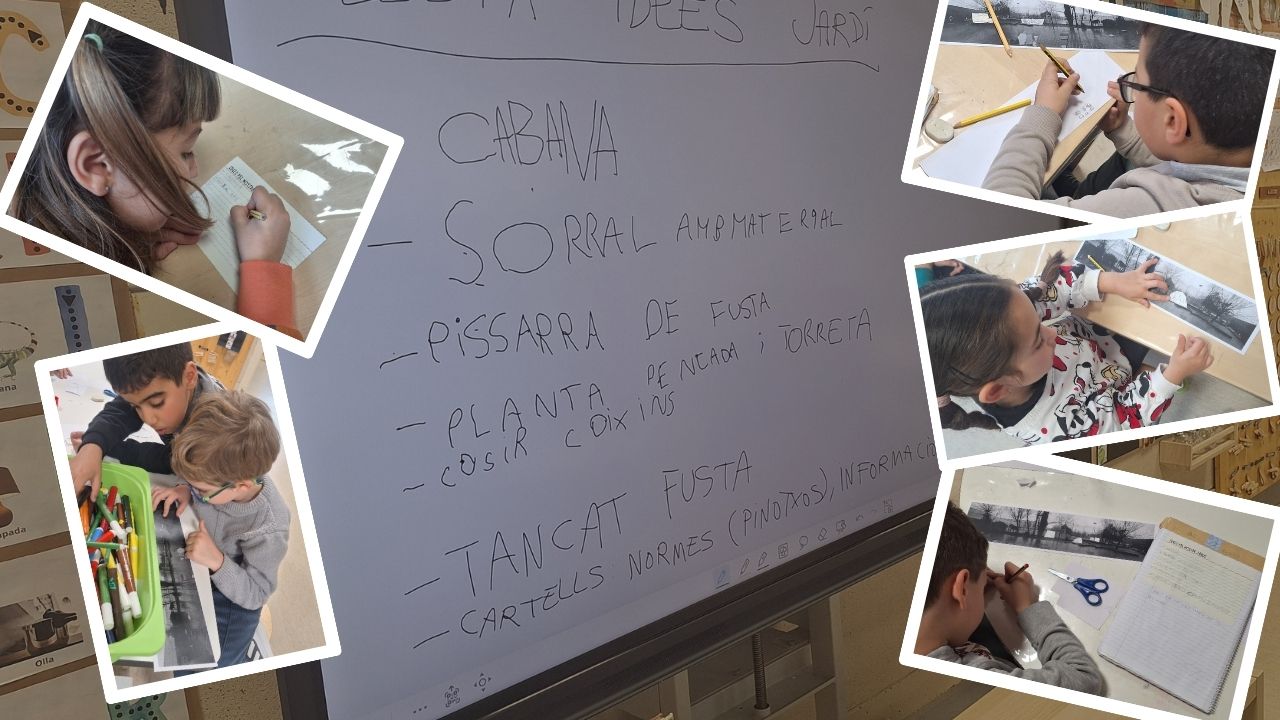 IDEES JARDÍ
CABANA
- SORRAL AMB MATERIAL
- PISSARRA DE FUSTA
- PLANTA PENJADA i TORRETA
- COSIR COIXINS
- TANCAT FUSTA
- CARTELLS NORMES (PINOTXOS), INFORMACIÓ
Olla